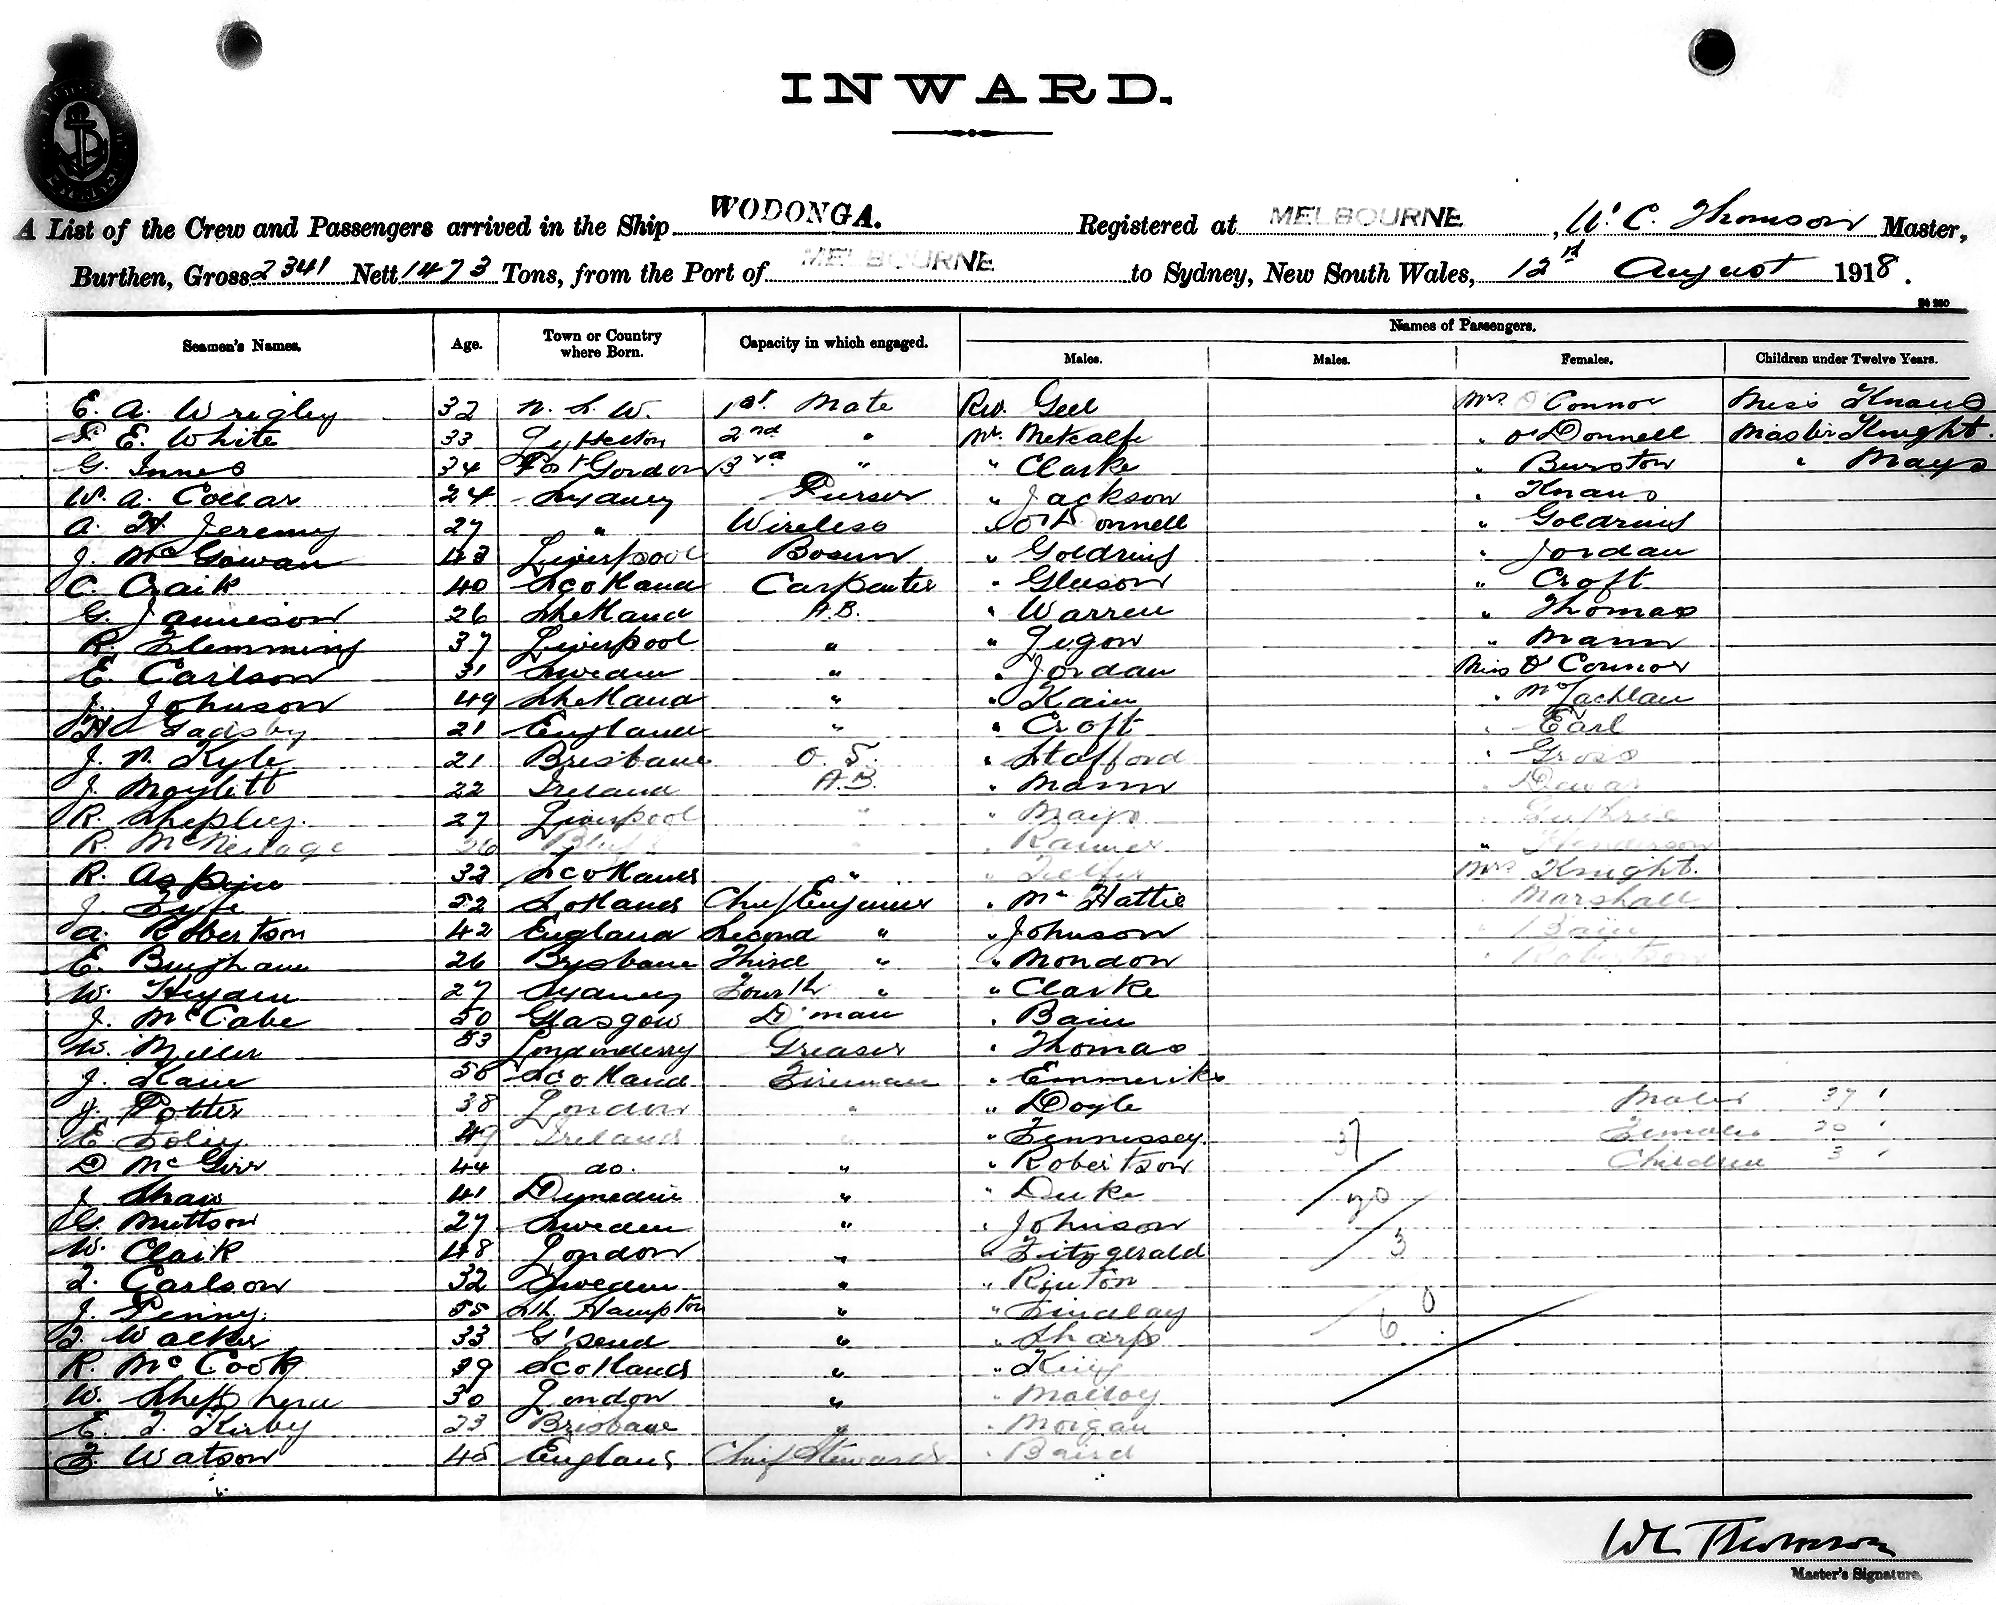 INWARD.
A List of the Crew and Passengers arrived in the Ship WODONGA. Registered at MELBOURNE, W. C. Thomson Master,
Burthen, Gross 2341 Nett 1473 Tons, from the Port of MELBOURNE to Sydney, New South Wales, 12th August 1918.
Seamen's Names. Age. Town or Country where Born. Capacity in which engaged. Names of Passengers.
Males. Males. Females. Children under Twelve Years.
E. A. Wrigley 32 N. S. W. 1st. Mate Rev. Geel Mrs. O'Connor Miss Knaus
F. E. White 33 Lyttelton 2nd " Mr. Metcalfe " O'Donnell Master Knight.
G. Innes 34 Port Gordon 3rd " " Clarke " Burston " Mays
W. A. Collar 24 Sydney Purser " Jackson " Knaus
A. H. Jeremy 27 " Wireless " O'Donnell " Goldring
J. McGowan 43 Liverpool Bosun " Goldring " Jordan
C. Craik 40 Scotland Carpenter " Gleeson " Croft
G. Jamieson 26 Shetland A.B. " Warren " Thomas
R. Flemming 37 Liverpool " " Legow " Mann
E. Carlson 31 Sweden " " Jordan Miss O'Connor
J. Johnson 49 Shetland " " Kain " McLachlan
H. Gadsby 21 England " " Croft " Earl
J. N. Kyle 21 Brisbane O. S. " Stafford " Gross
J. Moylett 22 Ireland A.B. " Mann " Dewar
R. Shepley. 27 Liverpool " " Mays " Guthrie
R. McNeilage 26 Bluff " " " Henderson
R. Aspin 32 Scotland " " Telfer Mrs Knight.
J. Fyfe 52 Scotland Chief Engineer " McHattie " Marshall
A. Robertson 42 England Second " " Johnson " Bain
E. Bingham 26 Brisbane Third " " Mondon " Robertson
W. Heyden 27 Sydney Fourth " " Clarke
J. McCabe 50 Glasgow D'man " Bain
W. Miller 53 Londonderry Greaser " Thomas
J. Kane 56 Scotland Fireman " Emmeriks
J. Potter 38 London " " Doyle Males 37
E. Foley 49 Ireland " " Fennessey. 37 Females 20
D McGirr 44 do. " " Robertson Children 3
J. Shaw 41 Dunedin " " Duke 20
G. Muttson 27 Sweden " " Johnson
W. Clark 48 London " " Fitzgerald 3
F. Carlson 32 Sweden " " Rinton
J. Penny. 55 Sth. Hampton " " Findlay 60
F. Walker 33 G'send " " Sharp
R. McCook 39 Scotland " " King
W. Shepherd 30 London " " Malloy
E. F. Kirby 23 Brisbane " " Morgan
F. Watson 45 England Chief Steward " Baird
W C Thomson
Master's Signature.